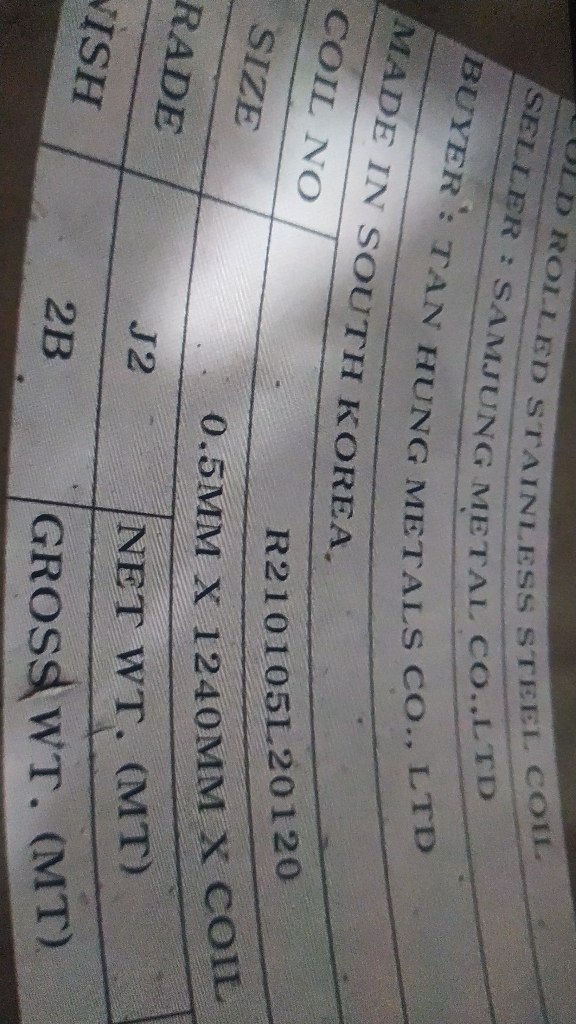 COLD ROLLED STAINLESS STEEL COIL
SELLER : SAMJUNG METAL CO.,LTD
BUYER : TAN HUNG METALS CO., LTD
MADE IN SOUTH KOREA,
COIL NO R210105L20120
SIZE 0.5MM X 1240MM X COIL
RADE J2 NET WT. (MT)
ISH 2B GROSS WT. (MT)